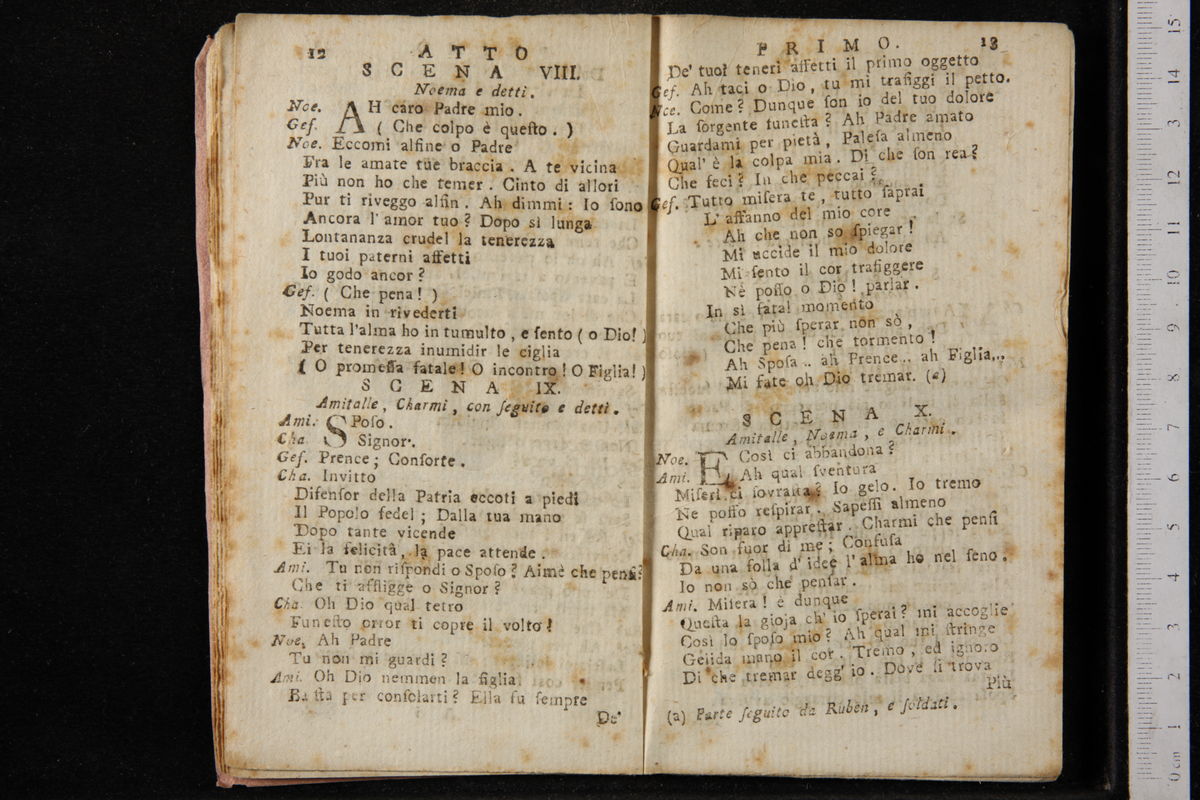 12 ATTO
SCENA VIII.
Noema e detti.
Noe. AH caro Padre mio.
Gef. ( Che colpo è queſto. )
Noe. Eccomi alfine o Padre
Fra le amate tue braccia. A te vicina
Più non ho che temer. Cinto di allori
Pur ti riveggo alfin. Ah dimmi: Io ſono
Ancora l'amor tuo? Dopo sì lunga
Lontananza crudel la tenerezza
I tuoi paterni affetti
Io godo ancor?
Gef. ( Che pena! )
Noema in rivederti
Tutta l'alma ho in tumulto, e ſento ( o Dio! )
Per tenerezza inumidir le ciglia
( O promeſſa fatale! O incontro! O Figlia! )
SCENA IX.
Amitalle, Charmi, con ſeguito e detti.
Ami. SPoſo.
Cha. Signor.
Gef. Prence; Conſorte.
Cha. Invitto
Difenſor della Patria eccoti a piedi
Il Popolo fedel; Dalla tua mano
Dopo tante vicende
Ei la felicità, la pace attende.
Ami. Tu non riſpondi o Spoſo? Aimè che penſi?
Che ti affligge o Signor?
Cha. Oh Dio qual tetro
Funeſto orror ti copre il volto!
Noe. Ah Padre
Tu non mi guardi?
Ami. Oh Dio nemmen la figlia
Baſta per conſolarti? Ella fu ſempre
De'
PRIMO. 13
De' tuoi teneri affetti il primo oggetto
Gef. Ah taci o Dio, tu mi trafiggi il petto.
Noe. Come? Dunque ſon io del tuo dolore
La ſorgente funeſta? Ah Padre amato
Guardami per pietà, Paleſa almeno
Qual' è la colpa mia. Di che ſon rea?
Che feci? In che peccai?
Gef. Tutto miſera te, tutto ſaprai.
L'affanno del mio core
Ah che non so ſpiegar!
Mi uccide il mio dolore
Mi ſento il cor trafiggere
Nè poſſo o Dio! parlar.
In sì fatal momento
Che più ſperar non sò,
Che pena! che tormento!
Ah Spoſa.. ah Prence.. ah Figlia...
Mi fate oh Dio tremar. (a)
SCENA X.
Amitalle, Noema, e Charmi.
Noe. E Così ci abbandona?
Ami. Ah qual ſventura
Miſeri ci ſovraſta? Io gelo. Io tremo
Ne poſſo reſpirar. Sapeſſi almeno
Qual riparo appreſtar. Charmi che penſi
Cha. Son fuor di me; Confuſa
Da una folla d'idee l'alma ho nel ſeno.
Io non sò che penſar.
Ami. Miſera! è dunque
Queſta la gioja ch'io ſperai? mi accoglie
Così lo ſpoſo mio? Ah qual mi ſtringe
Gelida mano il cor. Tremo, ed ignoro
Di che tremar degg' io. Dove ſi trova
Più
(a) Parte ſeguito da Ruben, e ſoldati.